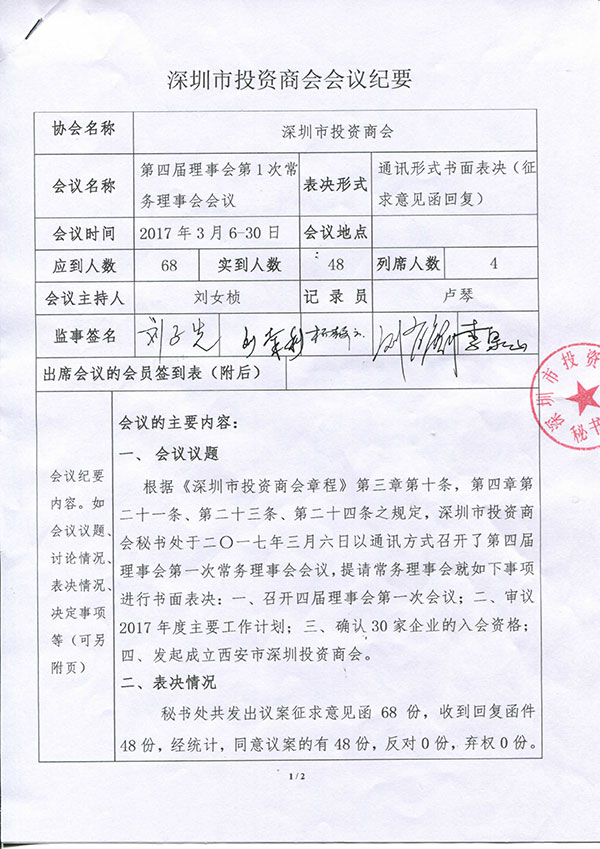 深圳市投资商会会议纪要
协会名称 深圳市投资商会
会议名称 第四届理事会第1次常务理事会会议 表决形式 通讯形式书面表决（征求意见函回复）
会议时间 2017年3月6-30日 会议地点
应到人数 68 实到人数 48 列席人数 4
会议主持人 刘女桢 记录员 卢琴
监事签名
出席会议的会员签到表（附后）
会议纪要
内容。如
会议议题、
讨论情况、
表决情况、
决定事项
等（可另
附页）
会议的主要内容：
一、会议议题
根据《深圳市投资商会章程》第三章第十条，第四章第
二十一条、第二十三条、第二十四条之规定，深圳市投资商
会秘书处于二〇一七年三月六日以通讯方式召开了第四届
理事会第一次常务理事会会议，提请常务理事会就如下事项
进行书面表决：一、召开四届理事会第一次会议；二、审议
2017年度主要工作计划；三、确认30家企业的入会资格；
四、发起成立西安市深圳投资商会。
二、表决情况
秘书处共发出议案征求意见函 68 份，收到回复函件
48份，经统计，同意议案的有48份，反对0份，弃权0份。
1/2
深圳市投资
秘书